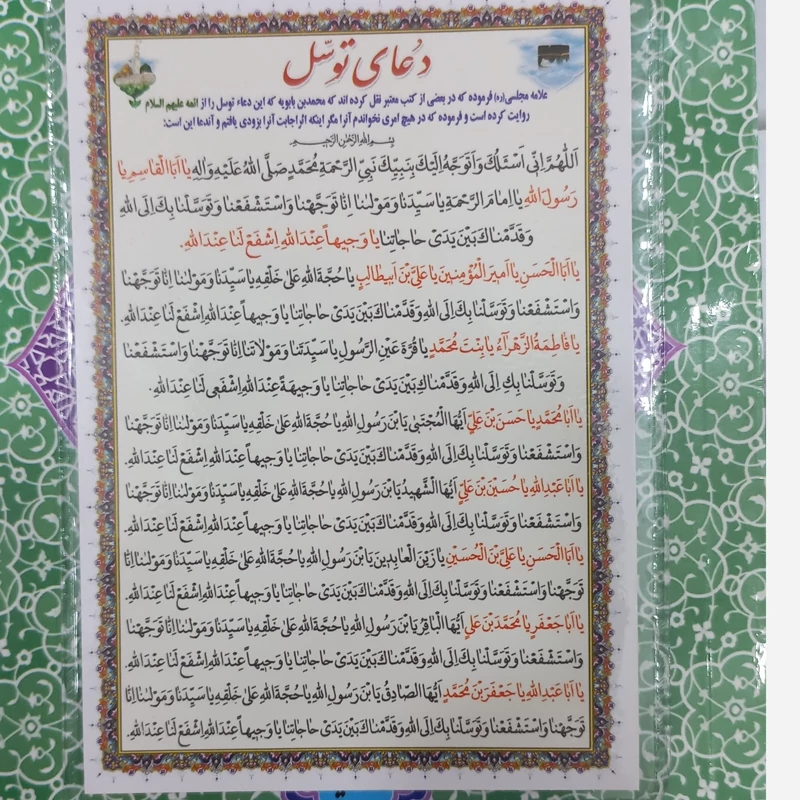 دُعای توسّل
علامه مجلسی(ره) فرموده که در بعضی از کتب معتبر نقل کرده اند که محمدبن بابویه که این دعاء توسل را از ائمه علیهم السلام
روایت کرده است و فرموده که در هیچ امری نخواندم آنرا مگر اینکه اثر اجابت آنرا بزودی یافتم و آندعا این است:
بِسْمِ اللهِ الرَّحْمٰنِ الرَّحیمِ
اَللّٰهُمَّ اِنّی اَسْئَلُكَ وَاَتَوَجَّهُ اِلَیْكَ بِنَبِیِّكَ نَبِیِّ الرَّحْمَةِ مُحَمَّدٍ صَلَّی اللهُ عَلَیْهِ وَآلِهِ یا اَبَا الْقاسِمِ یا
رَسُولَ اللهِ یا اِمامَ الرَّحْمَةِ یا سَیِّدَنا وَمَوْلٰنٰا اِنّا تَوَجَّهْنا وَاسْتَشْفَعْنا وَتَوَسَّلْنا بِكَ اِلَی اللهِ
وَقَدَّمْناكَ بَیْنَ یَدَیْ حاجاتِنا یا وَجیهاً عِنْدَاللهِ اِشْفَعْ لَنا عِنْدَاللهِ.
یا اَبَا الْحَسَنِ یا اَمیرَ الْمُؤْمِنینَ یا عَلِیَّ بْنَ اَبیطالِبٍ یا حُجَّةَ اللهِ عَلیٰ خَلْقِهِ یا سَیِّدَنا وَمَوْلٰنٰا اِنّا تَوَجَّهْنا
وَاسْتَشْفَعْنا وَتَوَسَّلْنا بِكَ اِلَی اللهِ وَقَدَّمْناكَ بَیْنَ یَدَیْ حاجاتِنا یا وَجیهاً عِنْدَاللهِ اِشْفَعْ لَنا عِنْدَاللهِ.
یا فاطِمَةُ الزَّهْرٰآءُ یا بِنْتَ مُحَمَّدٍ یا قُرَّةَ عَیْنِ الرَّسُولِ یا سَیِّدَتَنا وَمَوْلاتَنا اِنّا تَوَجَّهْنا وَاسْتَشْفَعْنا
وَتَوَسَّلْنا بِكِ اِلَی اللهِ وَقَدَّمْناكِ بَیْنَ یَدَیْ حاجاتِنا یا وَجیهَةً عِنْدَاللهِ اِشْفَعی لَنا عِنْدَاللهِ.
یا اَبا مُحَمَّدٍ یا حَسَنَ بْنَ عَلِیٍّ اَیُّهَا الْمُجْتَبیٰ یَا بْنَ رَسُولِ اللهِ یا حُجَّةَ اللهِ عَلیٰ خَلْقِهِ یا سَیِّدَنا وَمَوْلٰنٰا اِنّا تَوَجَّهْنا
وَاسْتَشْفَعْنا وَتَوَسَّلْنا بِكَ اِلَی اللهِ وَقَدَّمْناكَ بَیْنَ یَدَیْ حاجاتِنا یا وَجیهاً عِنْدَاللهِ اِشْفَعْ لَنا عِنْدَاللهِ.
یا اَبا عَبْدِ اللهِ یا حُسَیْنَ بْنَ عَلِیٍّ اَیُّهَا الشَّهیدُ یَا بْنَ رَسُولِ اللهِ یا حُجَّةَ اللهِ عَلیٰ خَلْقِهِ یا سَیِّدَنا وَمَوْلٰنٰا اِنّا تَوَجَّهْنا
وَاسْتَشْفَعْنا وَتَوَسَّلْنا بِكَ اِلَی اللهِ وَقَدَّمْناكَ بَیْنَ یَدَیْ حاجاتِنا یا وَجیهاً عِنْدَاللهِ اِشْفَعْ لَنا عِنْدَاللهِ.
یا اَبَا الْحَسَنِ یا عَلِیَّ بْنَ الْحُسَیْنِ یا زَیْنَ الْعابِدینَ یَا بْنَ رَسُولِ اللهِ یا حُجَّةَ اللهِ عَلیٰ خَلْقِهِ یا سَیِّدَنا وَمَوْلٰنٰا اِنّا
تَوَجَّهْنا وَاسْتَشْفَعْنا وَتَوَسَّلْنا بِكَ اِلَی اللهِ وَقَدَّمْناكَ بَیْنَ یَدَیْ حاجاتِنا یا وَجیهاً عِنْدَاللهِ اِشْفَعْ لَنا عِنْدَاللهِ.
یا اَبا جَعْفَرٍ یا مُحَمَّدَ بْنَ عَلِیٍّ اَیُّهَا الْباقِرُ یَا بْنَ رَسُولِ اللهِ یا حُجَّةَ اللهِ عَلیٰ خَلْقِهِ یا سَیِّدَنا وَمَوْلٰنٰا اِنّا تَوَجَّهْنا
وَاسْتَشْفَعْنا وَتَوَسَّلْنا بِكَ اِلَی اللهِ وَقَدَّمْناكَ بَیْنَ یَدَیْ حاجاتِنا یا وَجیهاً عِنْدَاللهِ اِشْفَعْ لَنا عِنْدَاللهِ.
یا اَبا عَبْدِ اللهِ یا جَعْفَرَ بْنَ مُحَمَّدٍ اَیُّهَا الصّادِقُ یَا بْنَ رَسُولِ اللهِ یا حُجَّةَ اللهِ عَلیٰ خَلْقِهِ یا سَیِّدَنا وَمَوْلٰنٰا اِنّا
تَوَجَّهْنا وَاسْتَشْفَعْنا وَتَوَسَّلْنا بِكَ اِلَی اللهِ وَقَدَّمْناكَ بَیْنَ یَدَیْ حاجاتِنا یا وَجیهاً عِنْدَاللهِ اِشْفَعْ لَنا عِنْدَاللهِ.